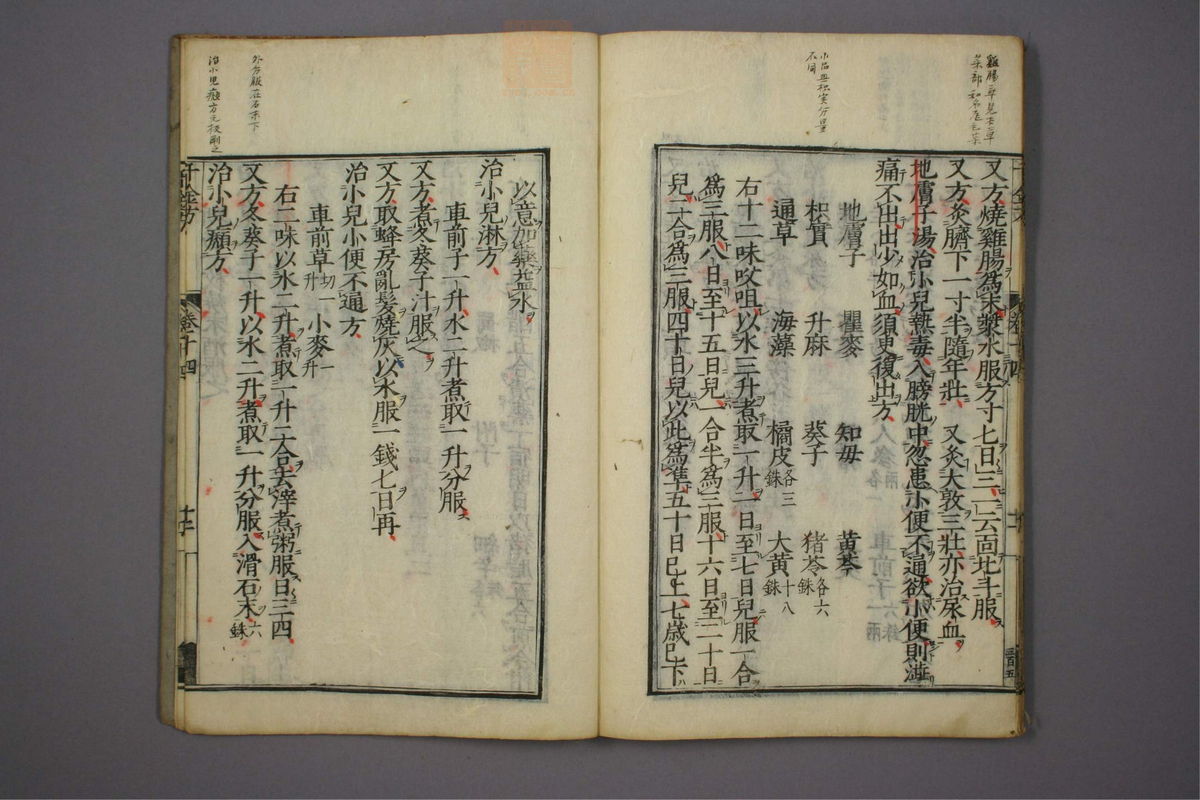 又方燒雞腸爲末漿水服方寸匕日三一云面北斗服
又方灸臍下一寸半隨年壯 又灸大敦三壯亦治尿血
地膚子湯治小兒熱毒入膀胱中忽患小便不通欲小便則澁
痛不出出少如血須臾復出方
地膚子 瞿麥 知母 黃芩
枳實 升麻 葵子 猪苓各六銖
通草 海藻 橘皮各三銖 大黃十八銖
右十二味㕮咀以水三升煮取一升一日至七日兒服一合
爲三服八日至十五日兒一合半爲三服十六日至二十日
兒二合爲三服四十日兒以此爲準五十日已上七歲已下
以意加藥益水
治小兒淋方
車前子一升水二升煮取一升分服
又方煮冬葵子汁服之
又方取蜂房亂髮燒灰以水服一錢匕日再
治小兒小便不通方
車前草切一升 小麥一升
右二味以水二升煮取一升二合去滓煮粥服日三四
又方冬葵子一升以水二升煮取一升分服入滑石末六銖
治小兒㿗方
千金方 卷十四 十二